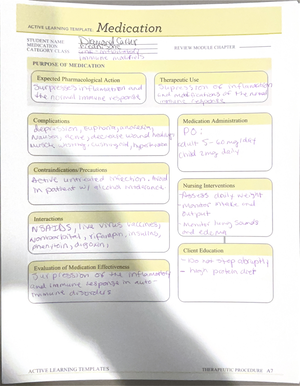 ACTIVE LEARNING TEMPLATE: Medication
STUDENT NAME
MEDICATION
REVIEW MODULE CHAPTER
CATEGORY CLASS
PURPOSE OF MEDICATION
Expected Pharmacological Action
and the normal immune response
Therapeutic Use
Suppression of inflammation
and modifications of the normal
immune response
Complications
Depression, euphoria, anorexia,
Nausea, acne, decrease wound healing
muscle wasting, cushingoid,
Medication Administration
PO:
adult 5-60mg/day
Contraindications/Precautions
Active untreated infection, Avoid
in patient w/ alcohol intolerance
Nursing Interventions
- Assess daily weight
- Monitor intake and
output
- monitor lung sounds
and edema
Interactions
NSAIDS, live virus vaccines,
rifampin, insulin,
digoxin,
Client Education
- Do not stop abruptly
- high protein diet
Evaluation of Medication Effectiveness
Supression of the inflammatory
and immune response in auto-
immune disorders
ACTIVE LEARNING TEMPLATES
THERAPEUTIC PROCEDURE A7